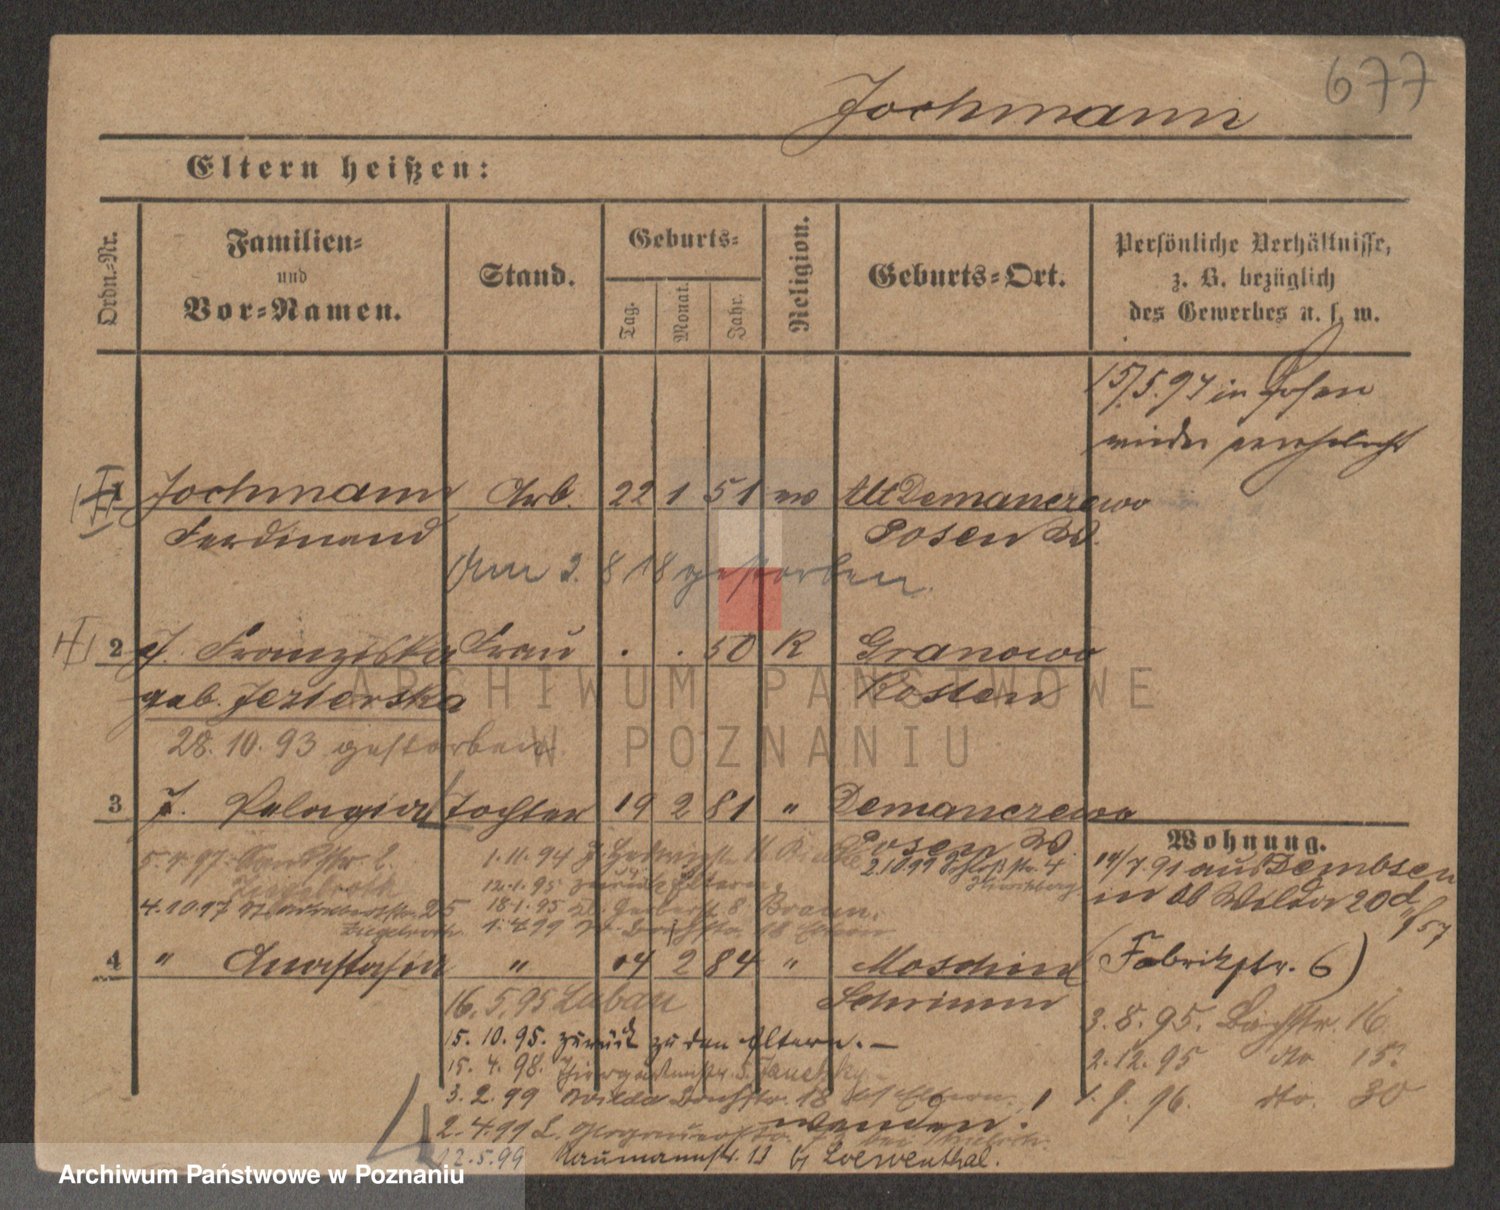 677
Jochmann
Eltern heißen:
Ordn.-Nr.
Familien-
und
Vor-Namen.
Stand.
Geburts-
Tag.
Monat.
Jahr.
Religion.
Geburts-Ort.
Persönliche Verhältnisse,
z. B. bezüglich
des Gewerbes u. s. w.
15/5.94 in Posen
wieder verehelicht
1 Jochmann Arb. 22 1 51 Alt Demanczewo
Ferdinand Posen W.
Am 3. 8 18 gestorben.
2 J. Franziska Frau . . 50 K Granowo
geb. Jezierska Kosten
28. 10. 93 gestorben
3 J. Pelagia Tochter 19 2 81 " Demanczewo
Posen W
Wohnung.
14/7.91 aus Dembsen
in Ob Wilda 20d
5.4.97 2.
Ziegelroth
1.11.94
2.10.99 Schloßstr. 4
12.1.95 zurück Eltern.
4.10.97 25
Ziegelroth.
18.1.95 Gerberst 8 Braun.
1.4.99 18 Eltern
4 " Anastasia " 14 2 84 " Moschin
Schrimm
(Fabrikstr. 6)
16. 5. 95 Luban
15. 10. 95. zurück zu den Eltern. —
15. 4. 98. Tiergartenstr. 5
3. 2. 99 Wilda Bachstr. 18 Eltern.
wenden!
2. 4. 99
12.5.99 Naumannstr. 13 Loewenthal.
3. 8. 95. Bachstr. 16
2. 12. 95 do 15.
96. do. 30
ARCHIWUM PAŃSTWOWE
W POZNANIU
Archiwum Państwowe w Poznaniu